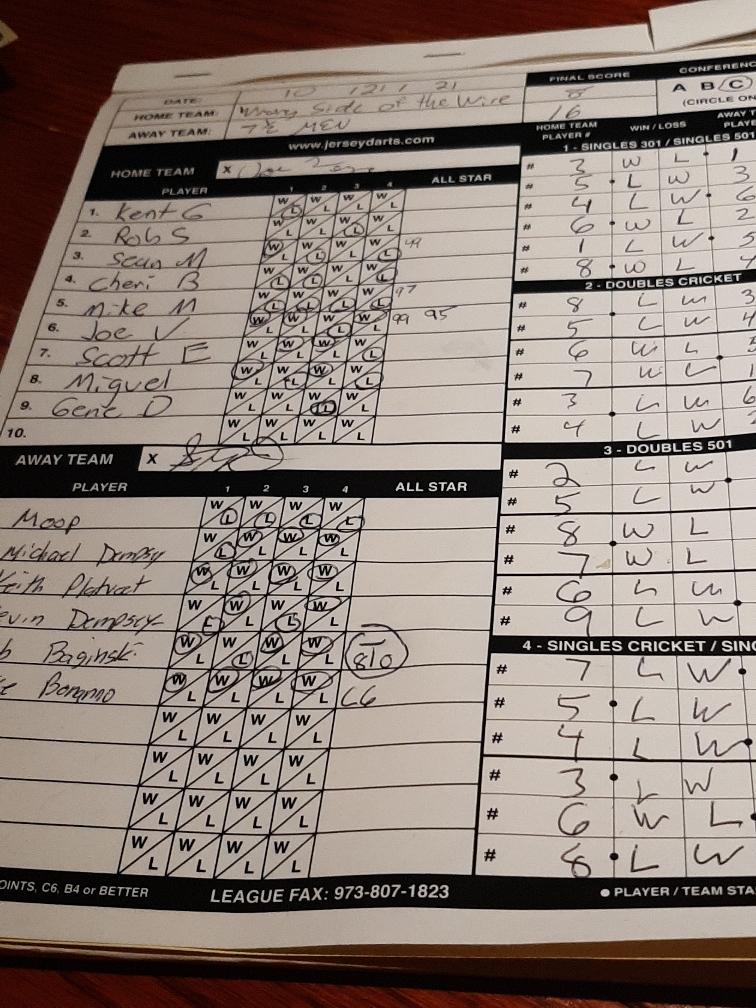 CONFERENC
FINAL SCORE
A B C
(CIRCLE ON
DATE: 10 / 21 / 21
HOME TEAM: Wrong Side of the Wire 8
AWAY TEAM: 7 ½ MEN 16
www.jerseydarts.com
HOME TEAM PLAYER # WIN / LOSS AWAY T PLAYE
HOME TEAM X
PLAYER 1 2 3 4 ALL STAR
1. Kent G
2. Rob S
3. Sean M 49
4. Cheri B
5. Mike M 97
6. Joe V 99 95
7. Scott E
8. Miguel
9. Gene D
10.
AWAY TEAM X
PLAYER 1 2 3 4 ALL STAR
Moop
Michael Dempsy
eith Platvoet
evin Dempsey
b Baginski 810
Bonanno C6
OINTS, C6, B4 or BETTER LEAGUE FAX: 973-807-1823
1 - SINGLES 301 / SINGLES 501
# 3 W L 1
# 5 L W 3
# 4 L W 6
# 6 W L 2
# 1 L W 5
# 8 W L 4
2 - DOUBLES CRICKET
# 8 L W 3
# 5 L W 4
# 6 W L 5
# 7 W L 1
# 3 L W 6
# 4 L W 2
3 - DOUBLES 501
# 2 L W
# 5 L W
# 8 W L
# 7 W L
# 6 L W
# 9 L W
4 - SINGLES CRICKET / SING
# 7 L W
# 5 L W
# 4 L W
# 3 L W
# 6 W L
# 8 L W
PLAYER / TEAM STA